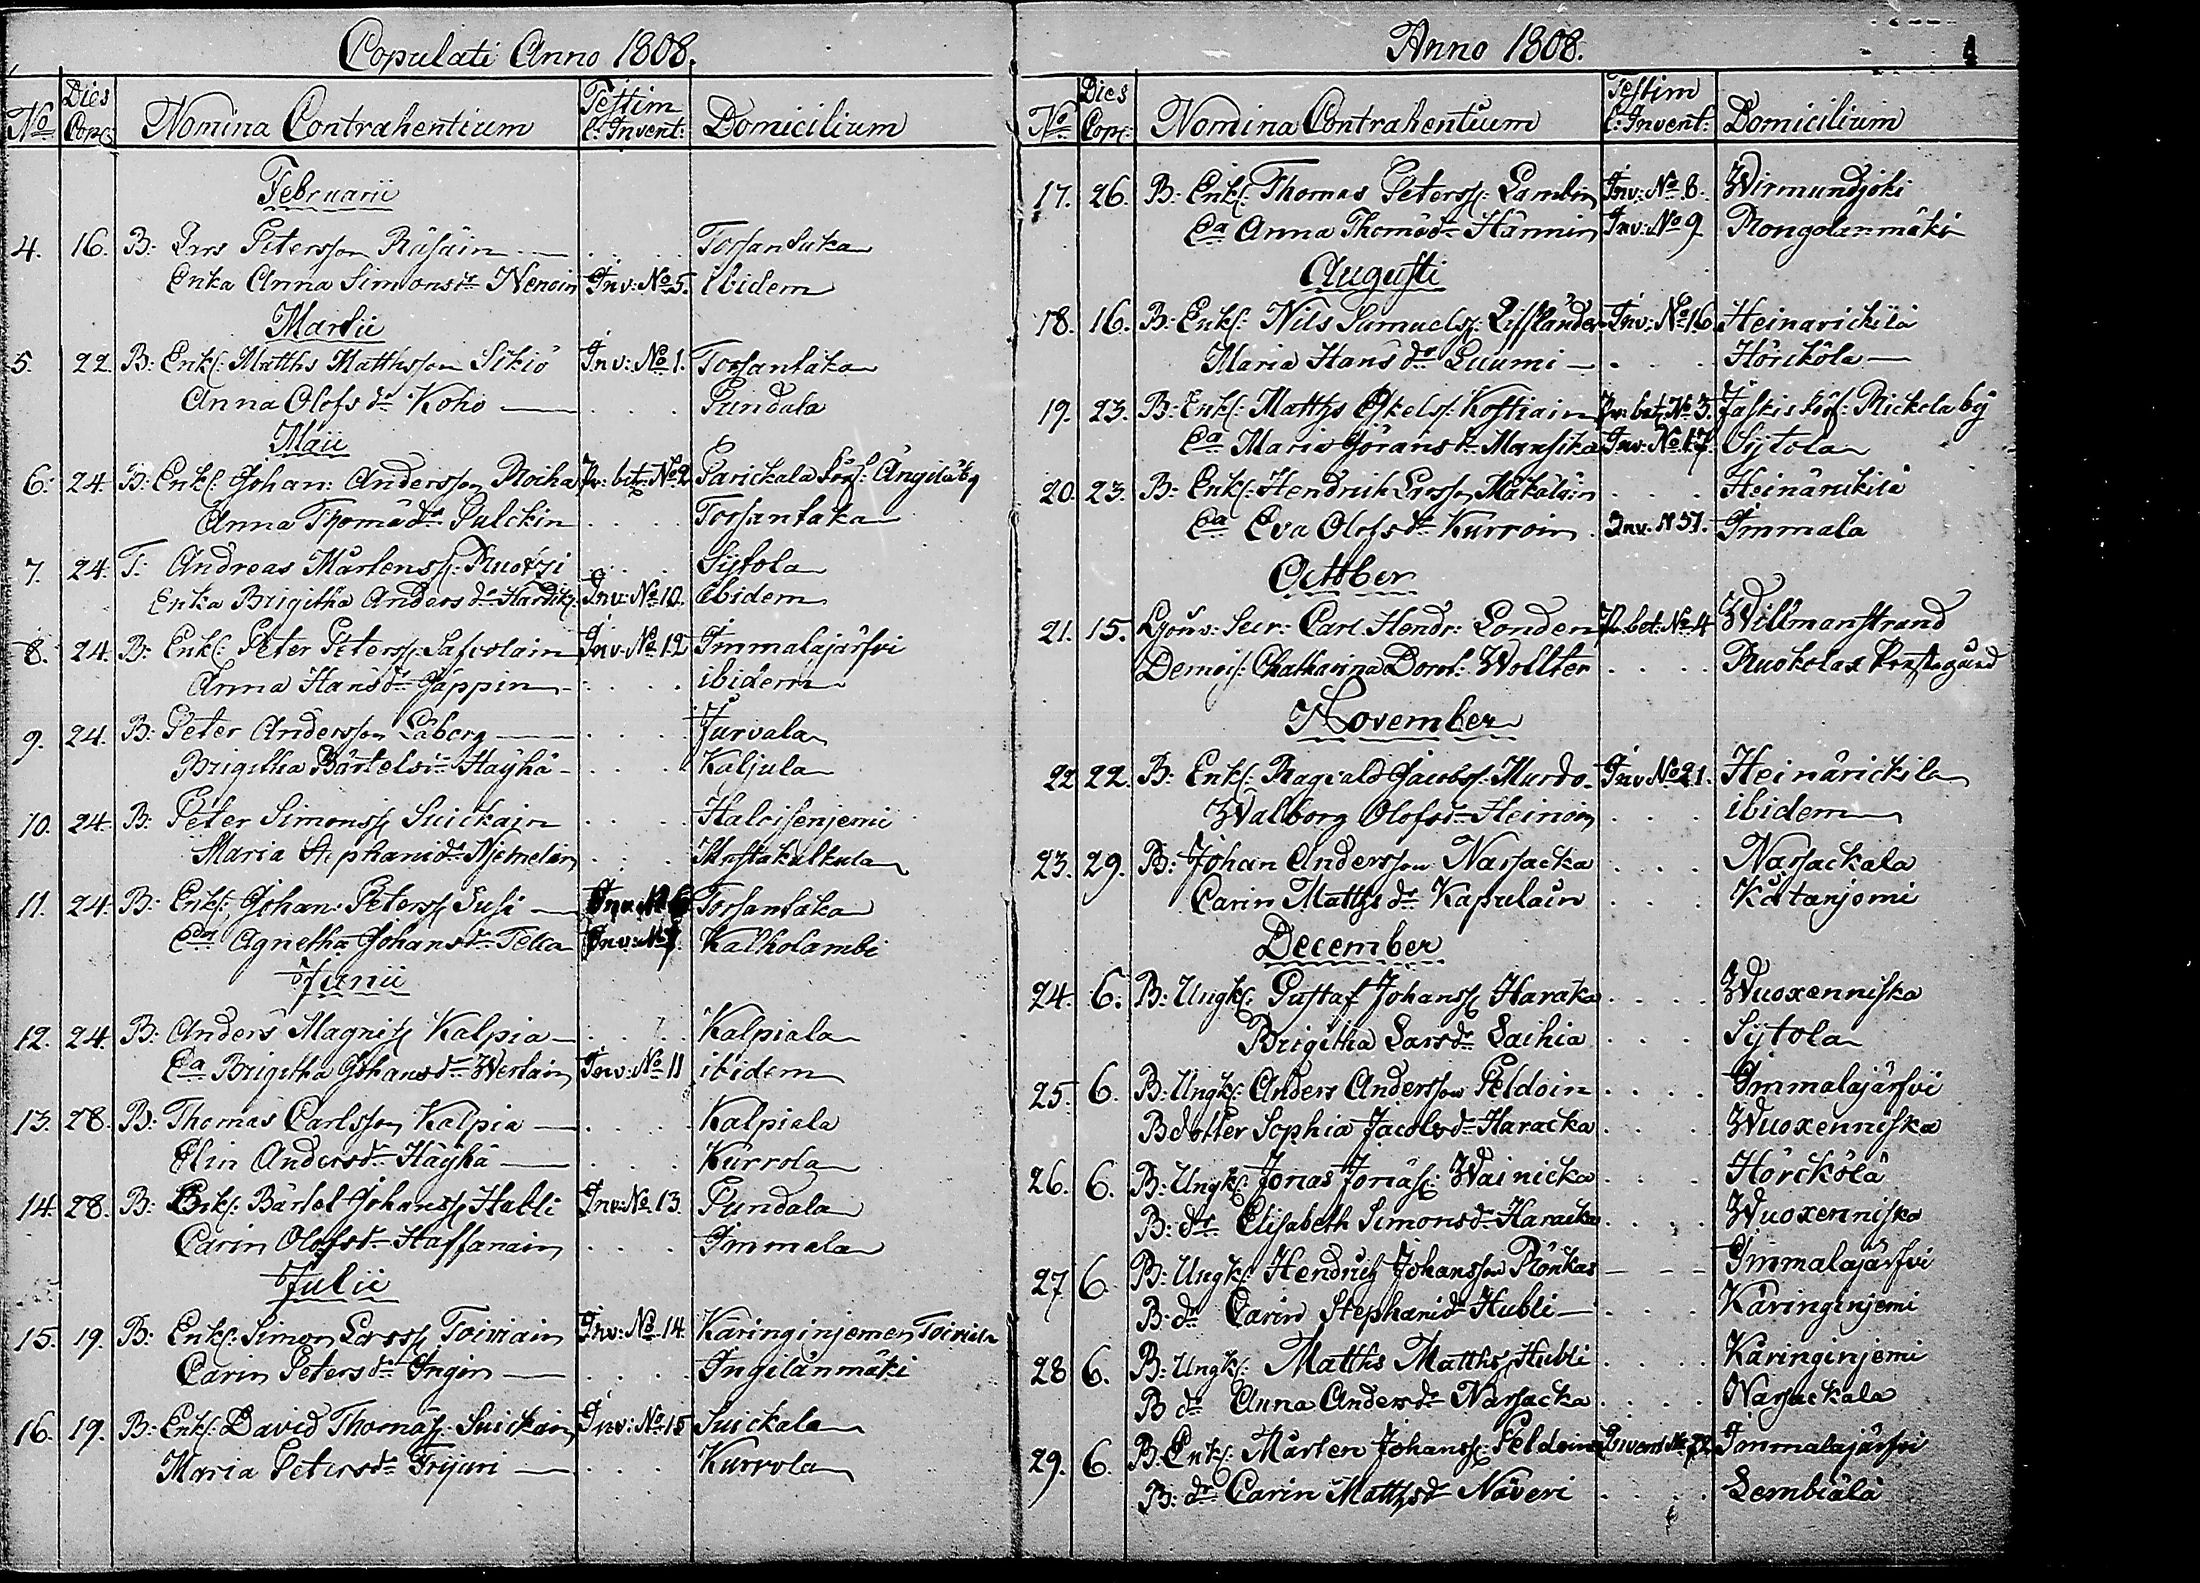 Populati Anno 1808.
No Dies Cop: Nomina Contrahentium Testim l: Invent: Domicilium
Februarii
4. 16. B: Lars Petersson Räsäin Torsansaka
Enka Anna Simonsdr Nenoin Inv: No 5. ibidem
Martii
5. 22 B: Enkl: Matths Matthsson Sikiö Inv: No 1. Torsansaka
Anna Olofsdr Koho Pundala
Maii
6. 24. B: Enkl: Johan: Andersson Rocha Pr: bet: No 2 Parickala Sokn: Ängilä by
Anna Thomädr Pulckin Torsansaka
7. 24. T: Andreas Mårtenss: Ruotzi Sijtola
Enka Brigitha Andersdr Inv: No 10. ibidem
8. 24. B: Enkl: Peter Peterss: Immalajärfvi
Inv: No 12
Anna Hansdr Jäppin ibidem
9. 24. B: Peter Andersson Låberg Jurvala
Brigitha Bärtelsdr Häyhä Kaljula
10. 24. B: Peter Simonss: Suickain Haloisenjemi
Maria Stephanidr Njemeläin
11. 24. B: Enkl: Johan: Peterss: Susi Inv: No 6 Torsansaka
Agnetha Johansdr Tella Inv: No 7. Kalholambi
Junii
12. 24. B: Anders Magniss: Kalpia Kalpiala
Ea Brigitha Johansdr Werlain Inv: No 11 ibidem
13. 28. B: Thomas Carlsson Kalpia Kalpiala
Elin Andersdr Häyhä Kurrola
14. 28. B: Enkl: Bärtel Johanss: Halli Inv: No 13. Pundala
Carin Olofsdr Haffanain Immala
Julii
15. 19. B: Enkl: Simon Larss: Toiviain Inv: No 14. Käringinjemen Toiviala
Carin Petersdr Ingin Ingilänmäki
16. 19. B: Enkl: David Thomäss: Suickain Inv: No 15 Suickala
Maria Petersdr Kurrola
Anno 1808. 4
No Dies Cop: Nomina Contrahentium Testim l: Invent: Domicilium
17. 26. B: Enkl: Thomas Peterss: Lambin Inv: No 8. Wirmundjoki
Ea Anna Thomädr Hännin Inv: No 9 Rongolanmäki
Augusti
18. 16. B: Enkl: Nils Samuelss: Lifflander Inv: No 16 Heinärickilä
Maria Hansdr Luumi Hörckölä
19. 23. B: Enkl: Matths Eskelss: Kostiain Pr: bet: No 3. Jäskis Sokn: Rickela by
Ea Maria Göransdr Mansika Inv: No 17. Sijtola
20. 23. B: Enkl: Hendrich Larsson Makäläin Heinärickilä
Ea Eva Olofsdr Kurroin Inv. N 51. Immala
October
21. 15. Secr: Carl Hendr: Londen Pr: bet: No 4 Willmanstrand
Demois: Chatharina Dorot: Wollter Ruokolax Prästegård
November
22 22. B: Enkl: Ragvald Jacobss: Murdo Inv No 21. Heinärickilä
Walborg Olofsdr Heinoin ibidem
23. 29. B: Johan Andersson Narsacka Narsackala
Carin Matthsdr Kapulain Kätanjemi
December
24. 6. B: Ungk: Gustaf Johanss: Haraka Wuoxenniska
Brigitha Larsdr Laihia Sijtola
25. 6. B: Ungk: Anders Andersson Peldoin Immalajärfvi
B dotter Sophia Jacobsdr Haracka Wuoxenniska
26. 6. B: Ungk: Jonas Jonäss: Wainicka Hörckölä
B: dr Elisabeth Simonsdr Haracka Wuoxenniska
27 6. B: Ungk: Hendrich Johansson Rönkas Immalajärfvi
B: dr Carin Stephanidr Hubli Käringinjemi
28 6. B: Ungk: Matths Matthss: Hubli Käringinjemi
B dr Anna Andersdr Narsacka Narsackala
29. 6. B: Enkl: Mårten Johanss: Peldoin Invent No 22 Immalajärfvi
B: dr Carin Matthsdr Näveri Lembiälä